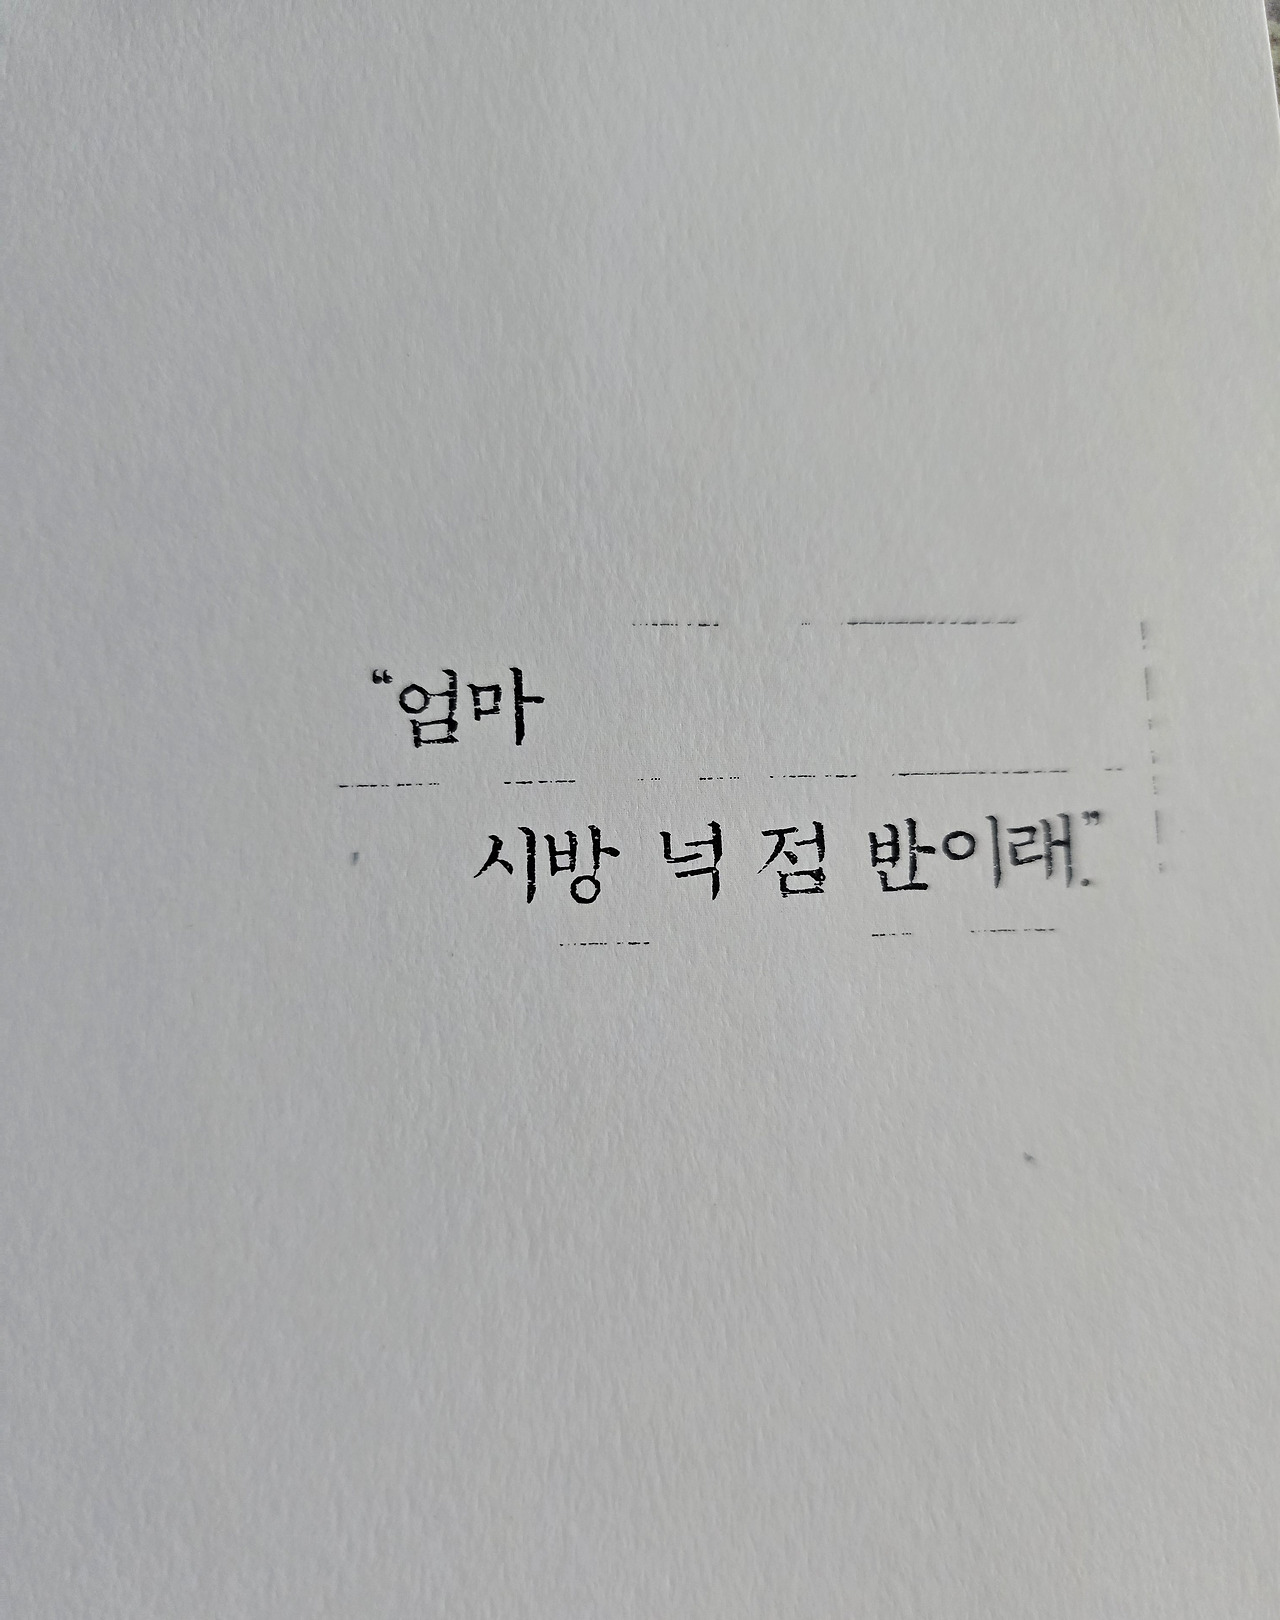 “엄마
시방 넉 점 반이래.”